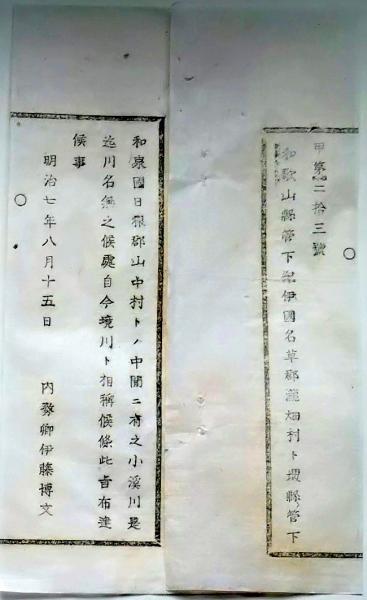 甲第二拾三號
和歌山縣管下紀伊國名草郡瀧畑村ト堺縣管下
和泉國日根郡山中村トノ中間ニ有之小溪川是
迄川名無之候處自今境川ト相稱候條此旨布達
候事
明治七年八月十五日
内務卿伊藤博文